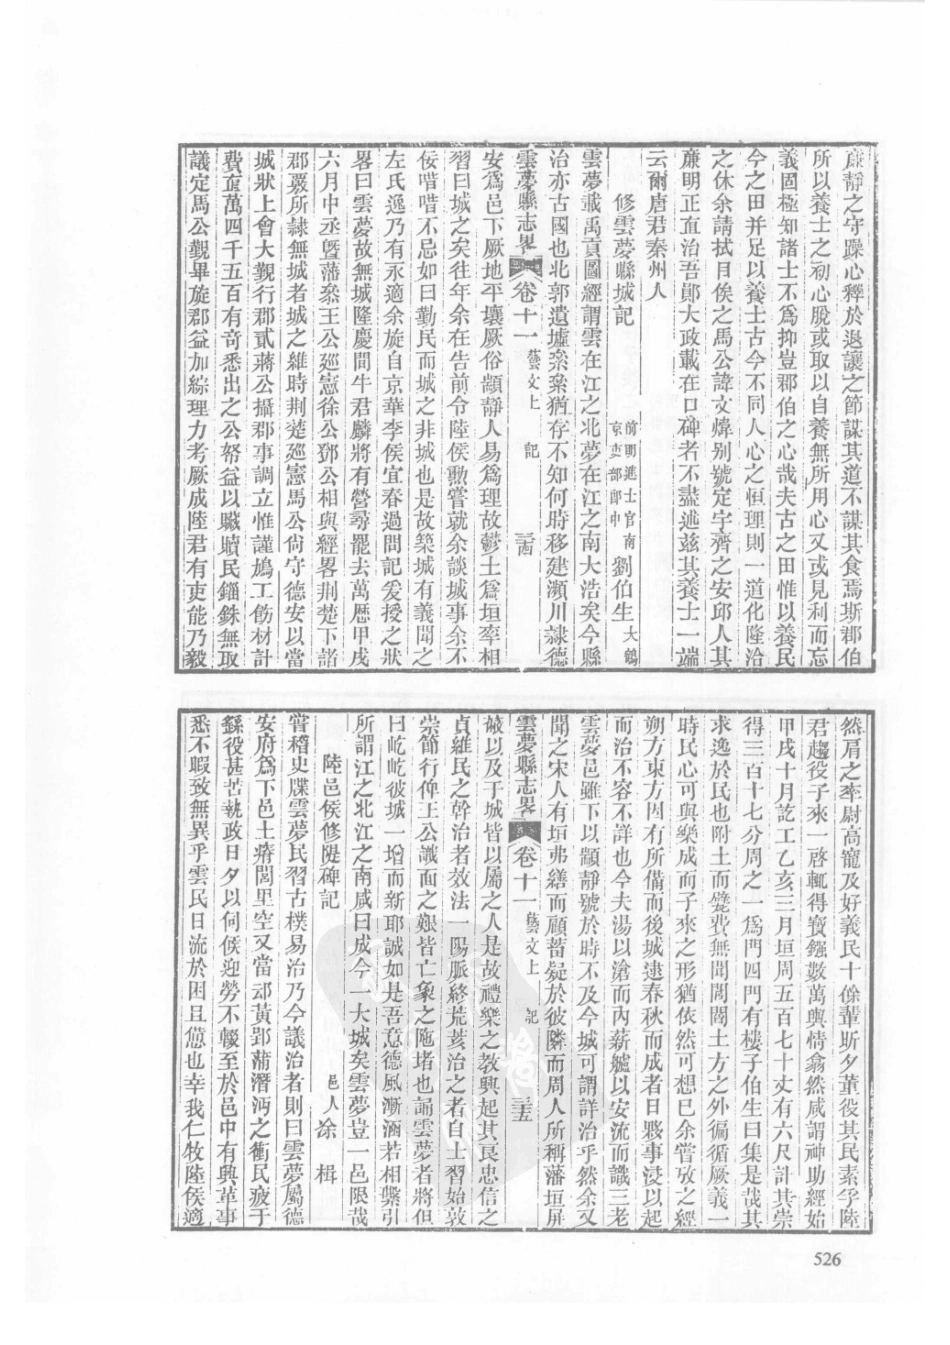 廉靜之守躁心釋於退讓之節謀其道不謀其食焉斯郡伯
所以養士之初心脫或取以自養無所用心又或見利而忘
義固極知諸士不爲抑豈郡伯之心哉夫古之田惟以養民
今之田并足以養士古今不同人心之恒理則一道化隆洽
之休余請拭目俟之馬公諱文煒别號定宇齊之安邱人其
廉明正直治吾鄖大政載在口碑者不盡述兹其養士一端
云爾唐君秦州人
修雲夢縣城記 前明進士官南京吏部郎中 劉伯生 大鶴
雲夢載禹貢圖經謂雲在江之北夢在江之南大浩矣今縣
治亦古國也北郭遺墟纍纍猶存不知何時移建瀕川隸德
雲夢縣志畧 卷十一 藝文上 記 三四
安爲邑下厥地平壤厥俗顓靜人易爲理故鬱土爲垣率相
習曰城之矣往年余在告前令陸侯勲嘗就余談城事余不
佞唶唶不忌如曰勤民而城之非城也是故築城有義聞之
左氏逸乃有永適余旋自京華李侯宜春過問記爰授之狀
畧曰雲夢故無城隆慶間牛君麟將有營尋罷去萬歴甲戌
六月中丞曁藩叅王公廵憲徐公鄧公相與經畧荆楚下諸
郡覈所隸無城者城之維時荆楚廵憲馬公尙守德安以當
城狀上會大觀行郡貳蔣公攝郡事調立惟謹鳩工飭材計
費萬四千五百有奇悉出之公帑益以贓贖民錙銖無取
議定馬公觀畢旋郡益加綜理力考厥成陸君有吏能乃毅
然肩之率尉高寵及好義民十餘輩昕夕董役其民素孚陸
君趨役子來一啓輒得寶鏹數萬輿情翕然咸謂神助經始
甲戌十月訖工乙亥三月垣周五百七十丈有六尺計其崇
得三百十七分周之一爲門四門有樓子伯生曰集是哉其
求逸於民也附土而甓費無聞閭閻土方之外徧循厥義一
時民心可與樂成而子來之形猶依然可想已余嘗攷之經
朔方東方因有所備而後城逮春秋而成者日夥事浸以起
而治不容不詳也今夫湯以滄而内薪艫以安流而識三老
雲夢邑雖下以顓靜號於時不及今城可謂詳治乎然余又
聞之宋人有垣弗繕而顧蓄疑於彼隣而周人所稱藩垣屏
雲夢縣志畧 卷十一 藝文上 記 三五
翰以及于城皆以屬之人是故禮樂之教興起其良忠信之
貞維民之幹治者效法一陽脈終荒萎治之者自士習始敦
崇簡行俾王公識面之艱皆亡象之陁堵也誦雲夢者將但
曰屹屹彼城一增而新耶誠如是吾意德風漸涵若相槩引
所謂江之北江之南咸曰成今一大城矣雲夢豈一邑限哉
陸邑侯修隄碑記 邑人 凃楫
嘗稽史牒雲夢民習古樸易治乃今議治者則曰雲夢屬德
安府爲下邑土瘠閭里空又當䢵黃鄂蒲潛沔之衝民疲于
繇役甚苦執政日夕以伺候迎勞不輟至於邑中有興革事
悉不暇致無異乎雲民日流於困且憊也幸我仁牧陸侯適
526